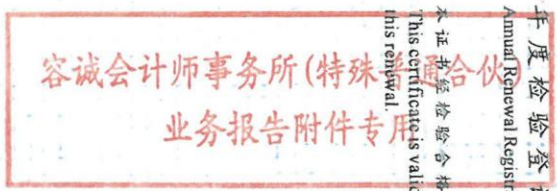 容诚会计师事务所(特殊普通合伙)
业务报告附件专用
年度检验登
Annual Renewal Regist
本证书经检验合格
This certificate is valid
this renewal.